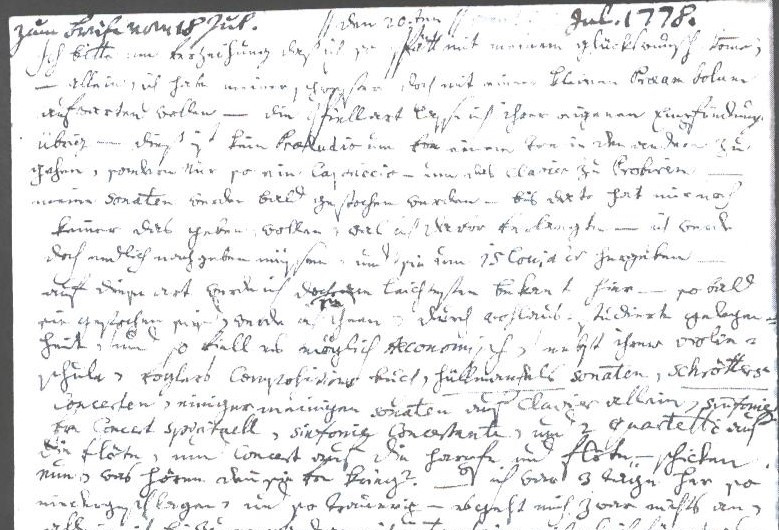 zum Briefe vom 18 Jul. den 20.ten Jul. 1778.
Ich bitte um verzeihung daß ich so spätt mit meinem glückswunsch komme,
— allein, ich habe meiner schwester doch mit einem kleinen Præambolum
aufwarten wollen — die spiellart lasse ich ihrer eigenen Empfindung
übrig — dieß ist kein Præludio um von einem Ton in den andern zu
gehen, sondern nur so ein Capriccio — um das Clavier zu Probiren —
meine Sonaten werden bald gestochen werden — bis dato hat mir noch
keiner das geben wollen, was ich davor verlangte — ich werde
doch endlich nachgeben müssen, und sie um 15 Louis d'or hergeben —
auf diese art werde ich doch am leichtesten bekant hier — so bald
sie gestochen sind, werde ich ihnen, durch wohlaus=studierte gelegen=
heit, und so viell es möglich æconomisch, nebst ihrer violin=
schule, voglers Compositions buch, hüllmandels sonaten, schrötters
Concerten, einiger meinigen sonaten auf Clavier allein, sinfonie
vom Concert spirituell, sinfonie Concertante, und 2 quartetti auf
die flöte, und Concert auf die harpfe und flöte — schicken
nun, was hören denn sie vom krieg? — ich war 3 täge her so
niedergeschlagen, und so trauerig — es geht mich zwar nichts an,